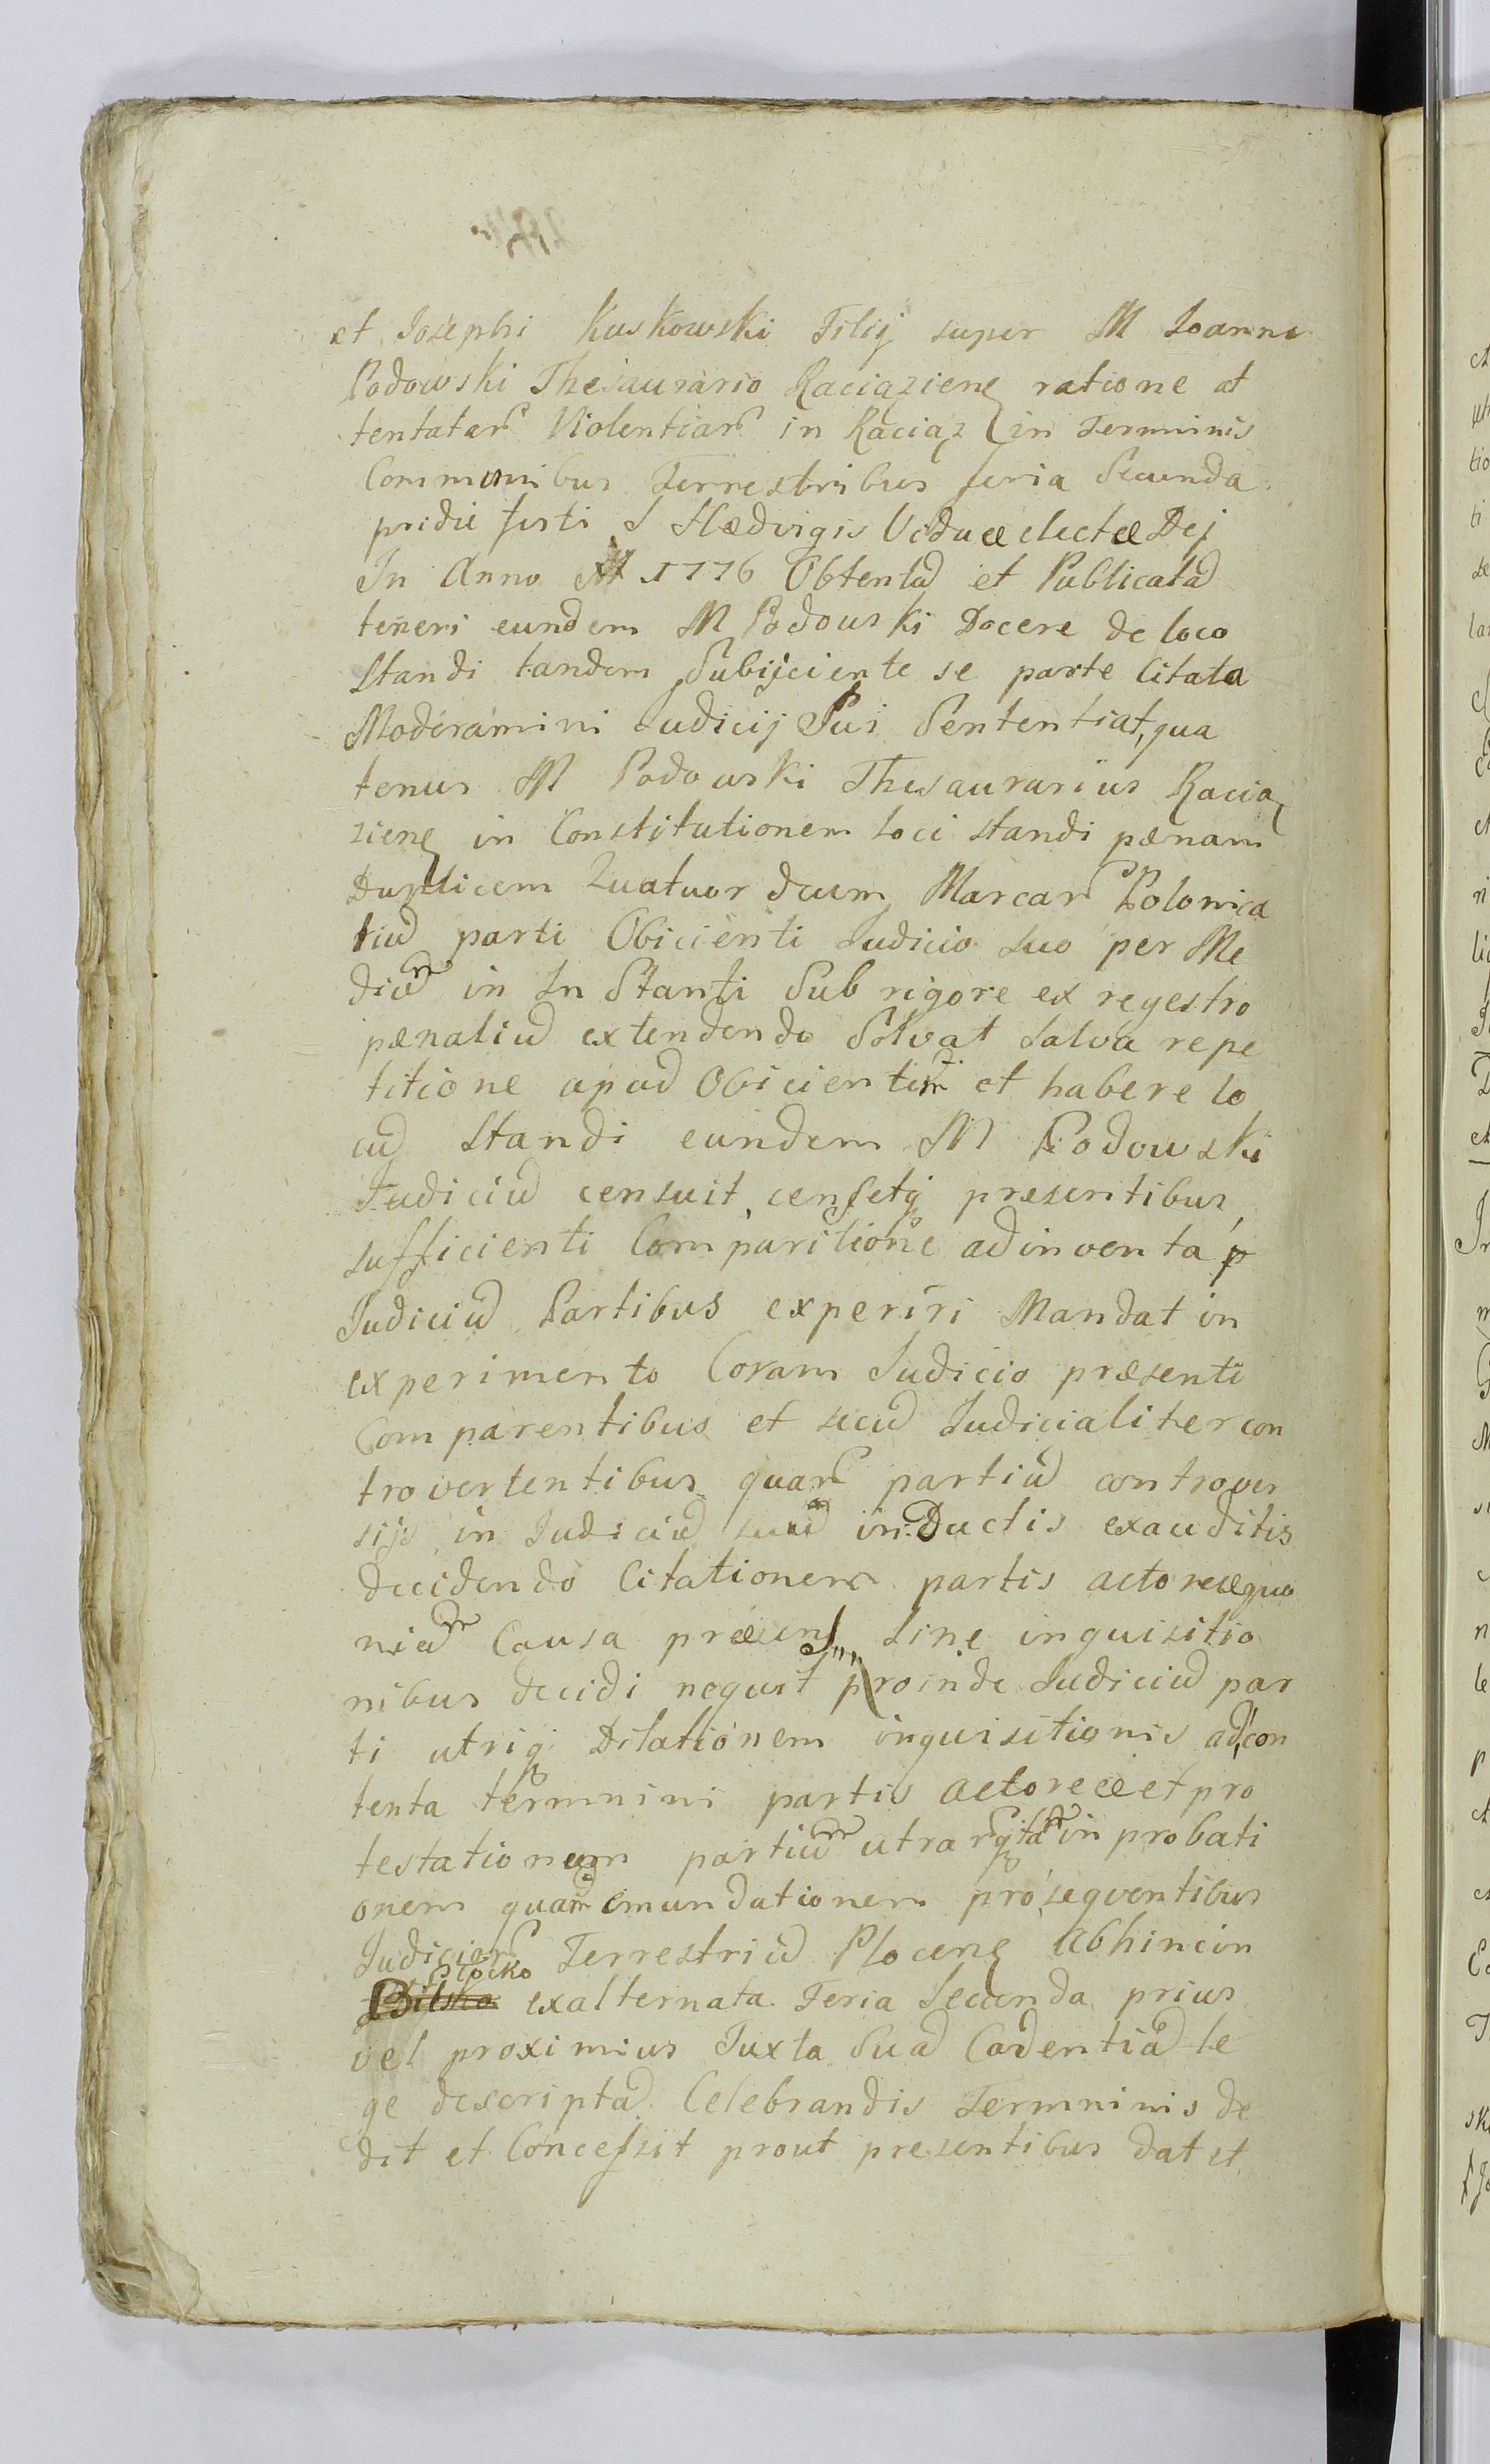 et Josephi Kuskowski Filij super M Joanne
Podowski Thesaurario Raciązienę ratione at
tentatar Violentiar in Raciąz in Terminis
Communibus Terrestribus feria Secunda
pridie festi S Hædvigis Viduæ electæ Dej
In Anno 1776 Obtentã et Publicatã
teneri eundem M Podowski Docere de loco
Standi tandem Subijciente se parte Citata
Moderamini Judicij Sui Sententiat, qua
tenus M Podowski Thesaurarius Racią
zienę in Constitutionem Loci standi pænam
Duplicem Quatuordcum Marcar Polonica
liũ parti Obicienti Judicio suo per Me
diũ in Instanti Sub rigore ex regestro
pænaliũ extendendo Solvat Salva repe
titione apud Obicientem et habere lo
cũ Standi eundem M Podowski
Judiciũ censuit, censetq presentibus,
sufficienti Comparitione adinventa p
Judiciũ Partibus experiri Mandat in
experimento Coram Judicio præsenti
Comparentibus et secũ Judicialiter con
trovertentibus quar partiũ controver
sijs in Judiciũ suũ inductis exauditis
Decidendo Citationem partis actoreæ quo
niã Causa præsens sine inquisitio
nibus decidi nequit proinde Judiciũ par
ti utriq Dilationem inquisitionis ad con
tenta termnini partis actoreæ et pro
testationum partiũ utrarq tã in probati
onem quam emundationem prosequentibus
Judiciar Terrestriũ Plocenę abhinc in
Bilsko Plocko exalternata Feria Secunda prius
vel proximius Juxta Suã Cadentiã le
ge descriptã Celebrandis Termninis de
dit et Concessit prout presentibus dat et